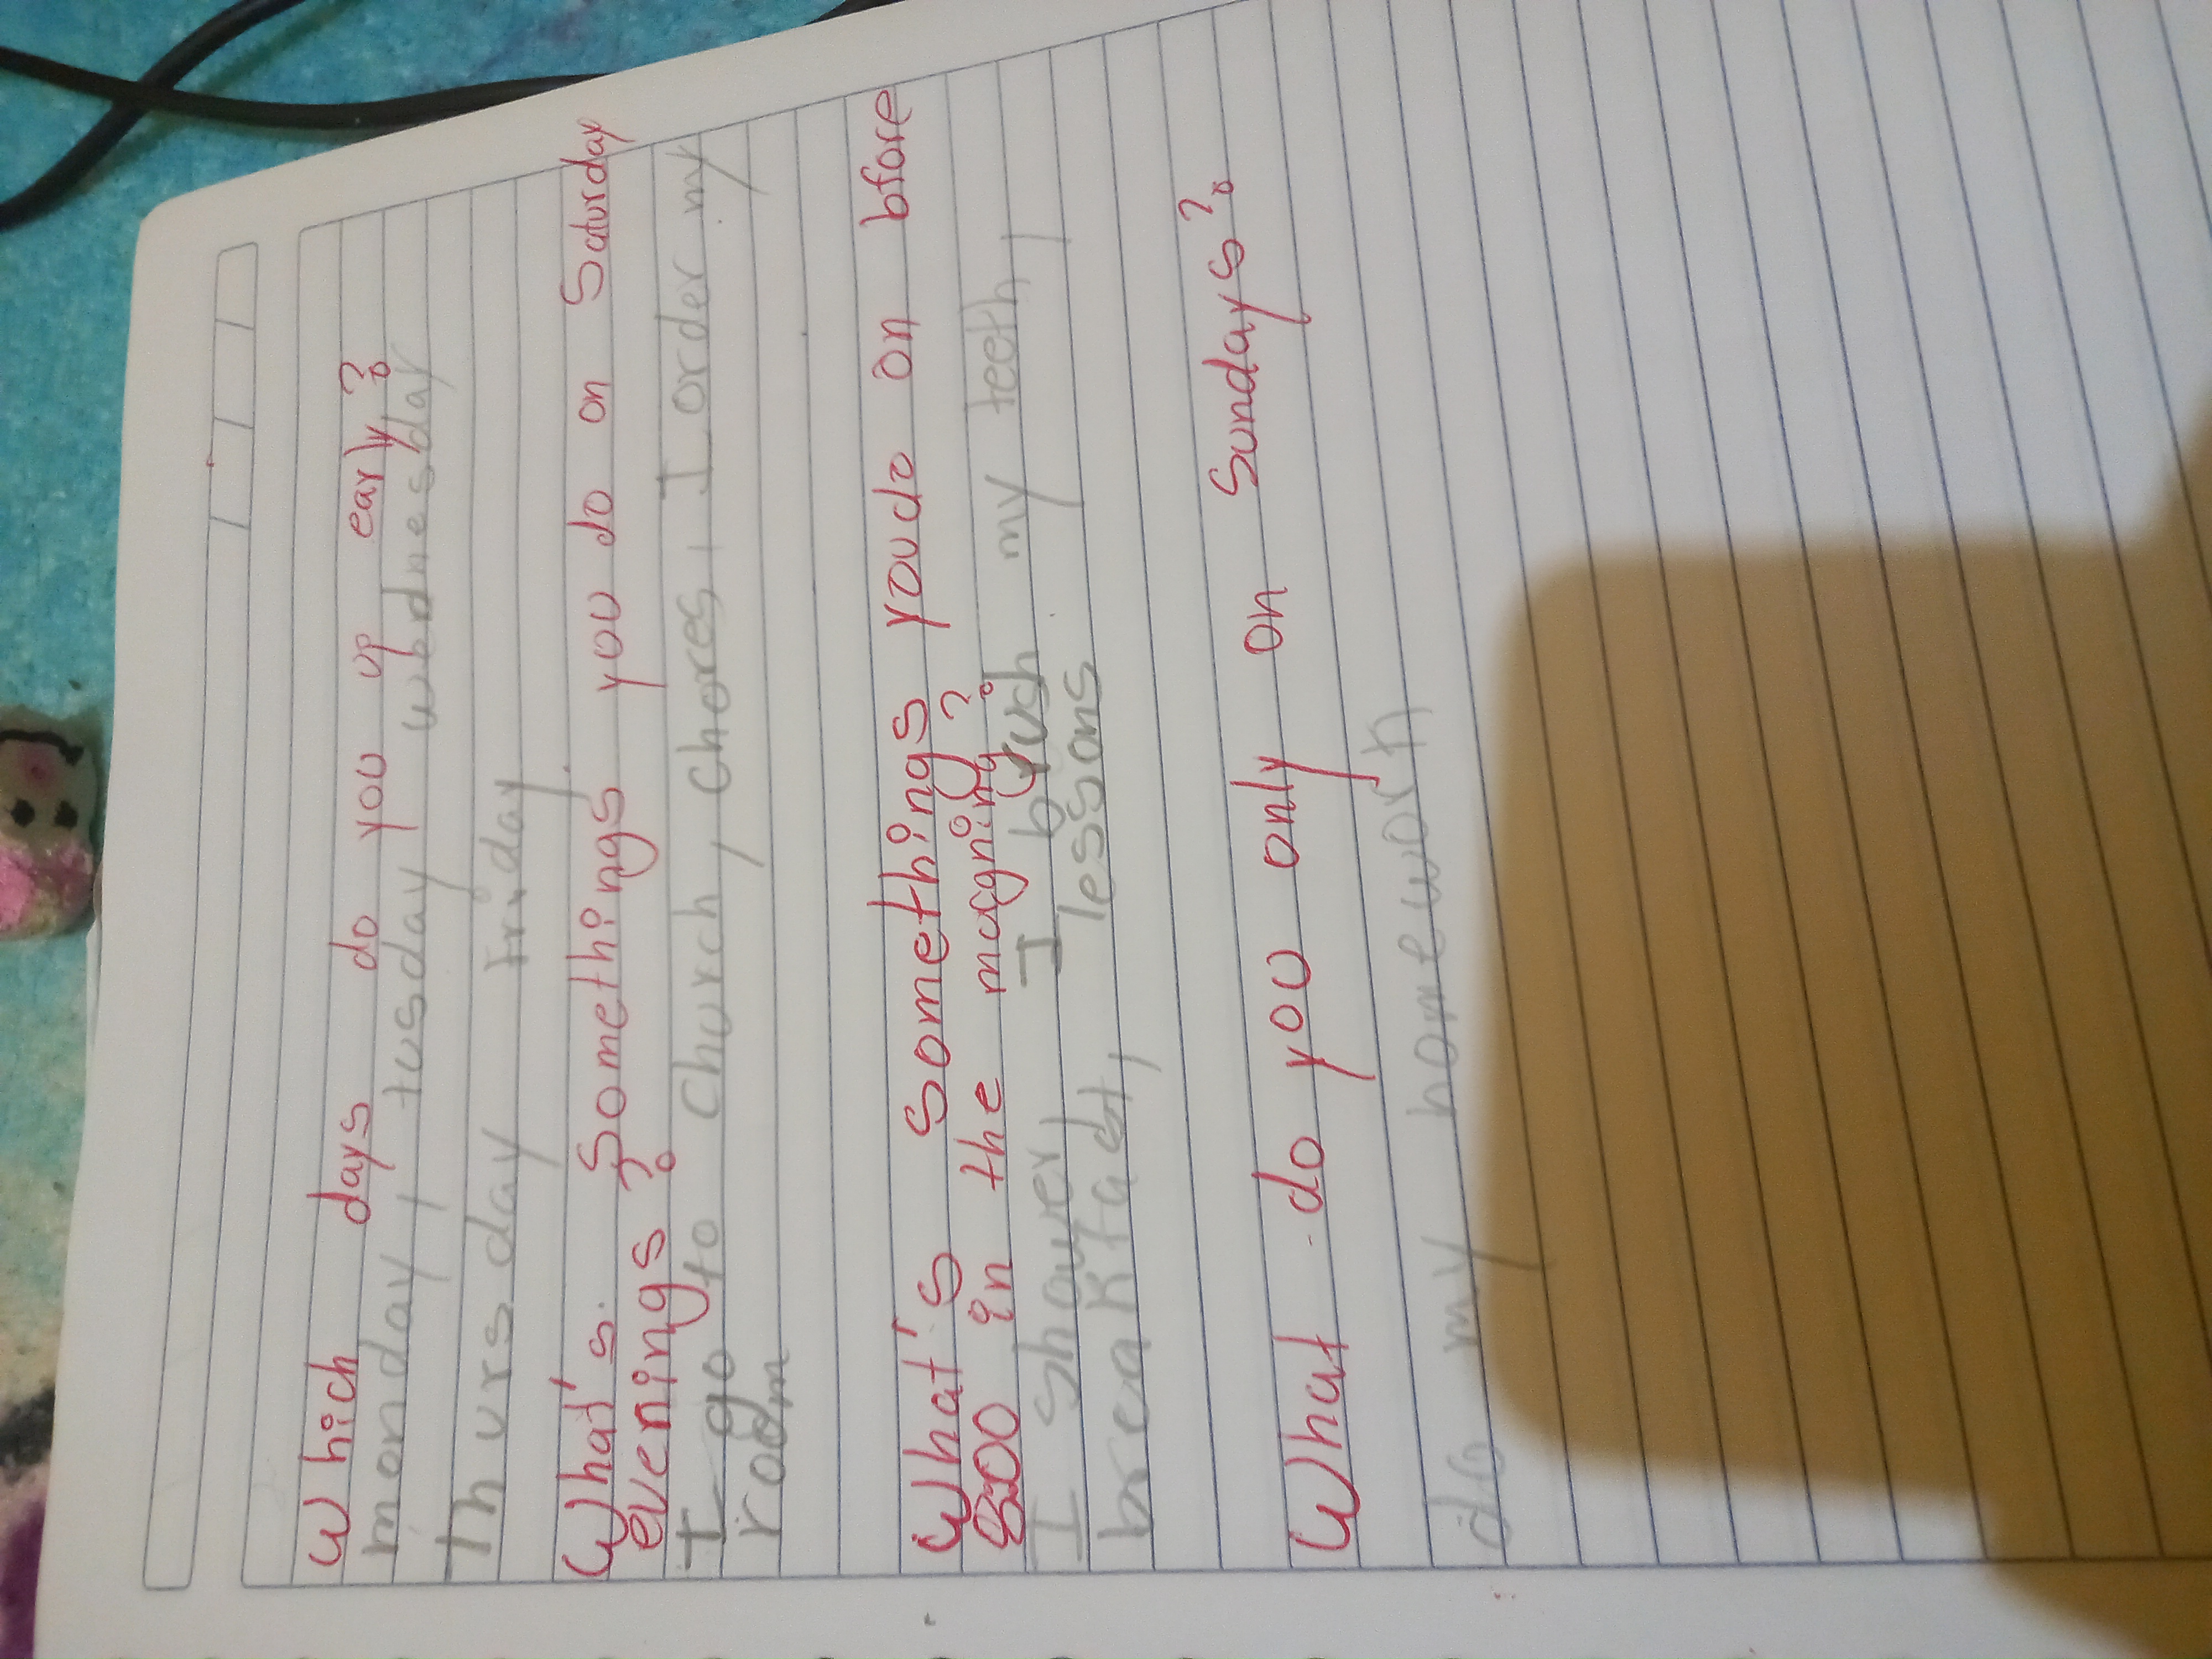 Which days do you up early?
monday, tusday wednesday
Thursday Friday.
What's. Somethings you do on Saturday
evenings?
I go to church, chores, I order my
room
What's Somethings youdo on bfore
8:00 in the mogning?
I shower I brush my teeth,
breakfadt, lessons
What do you only on Sundays?
do my homework